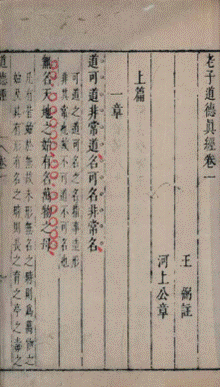 老子道德眞經卷一
王弼註
河上公章
上篇
一章
道可道非常道名可名非常名
可道之道可名之名指事造形
非其常也故不可道不可名也
無名天地之始有名萬物之母
凡有皆始於無故未形無名之時則爲萬物之
始及其有形有名之時則長之育之亭之毒之
道德經
卷一